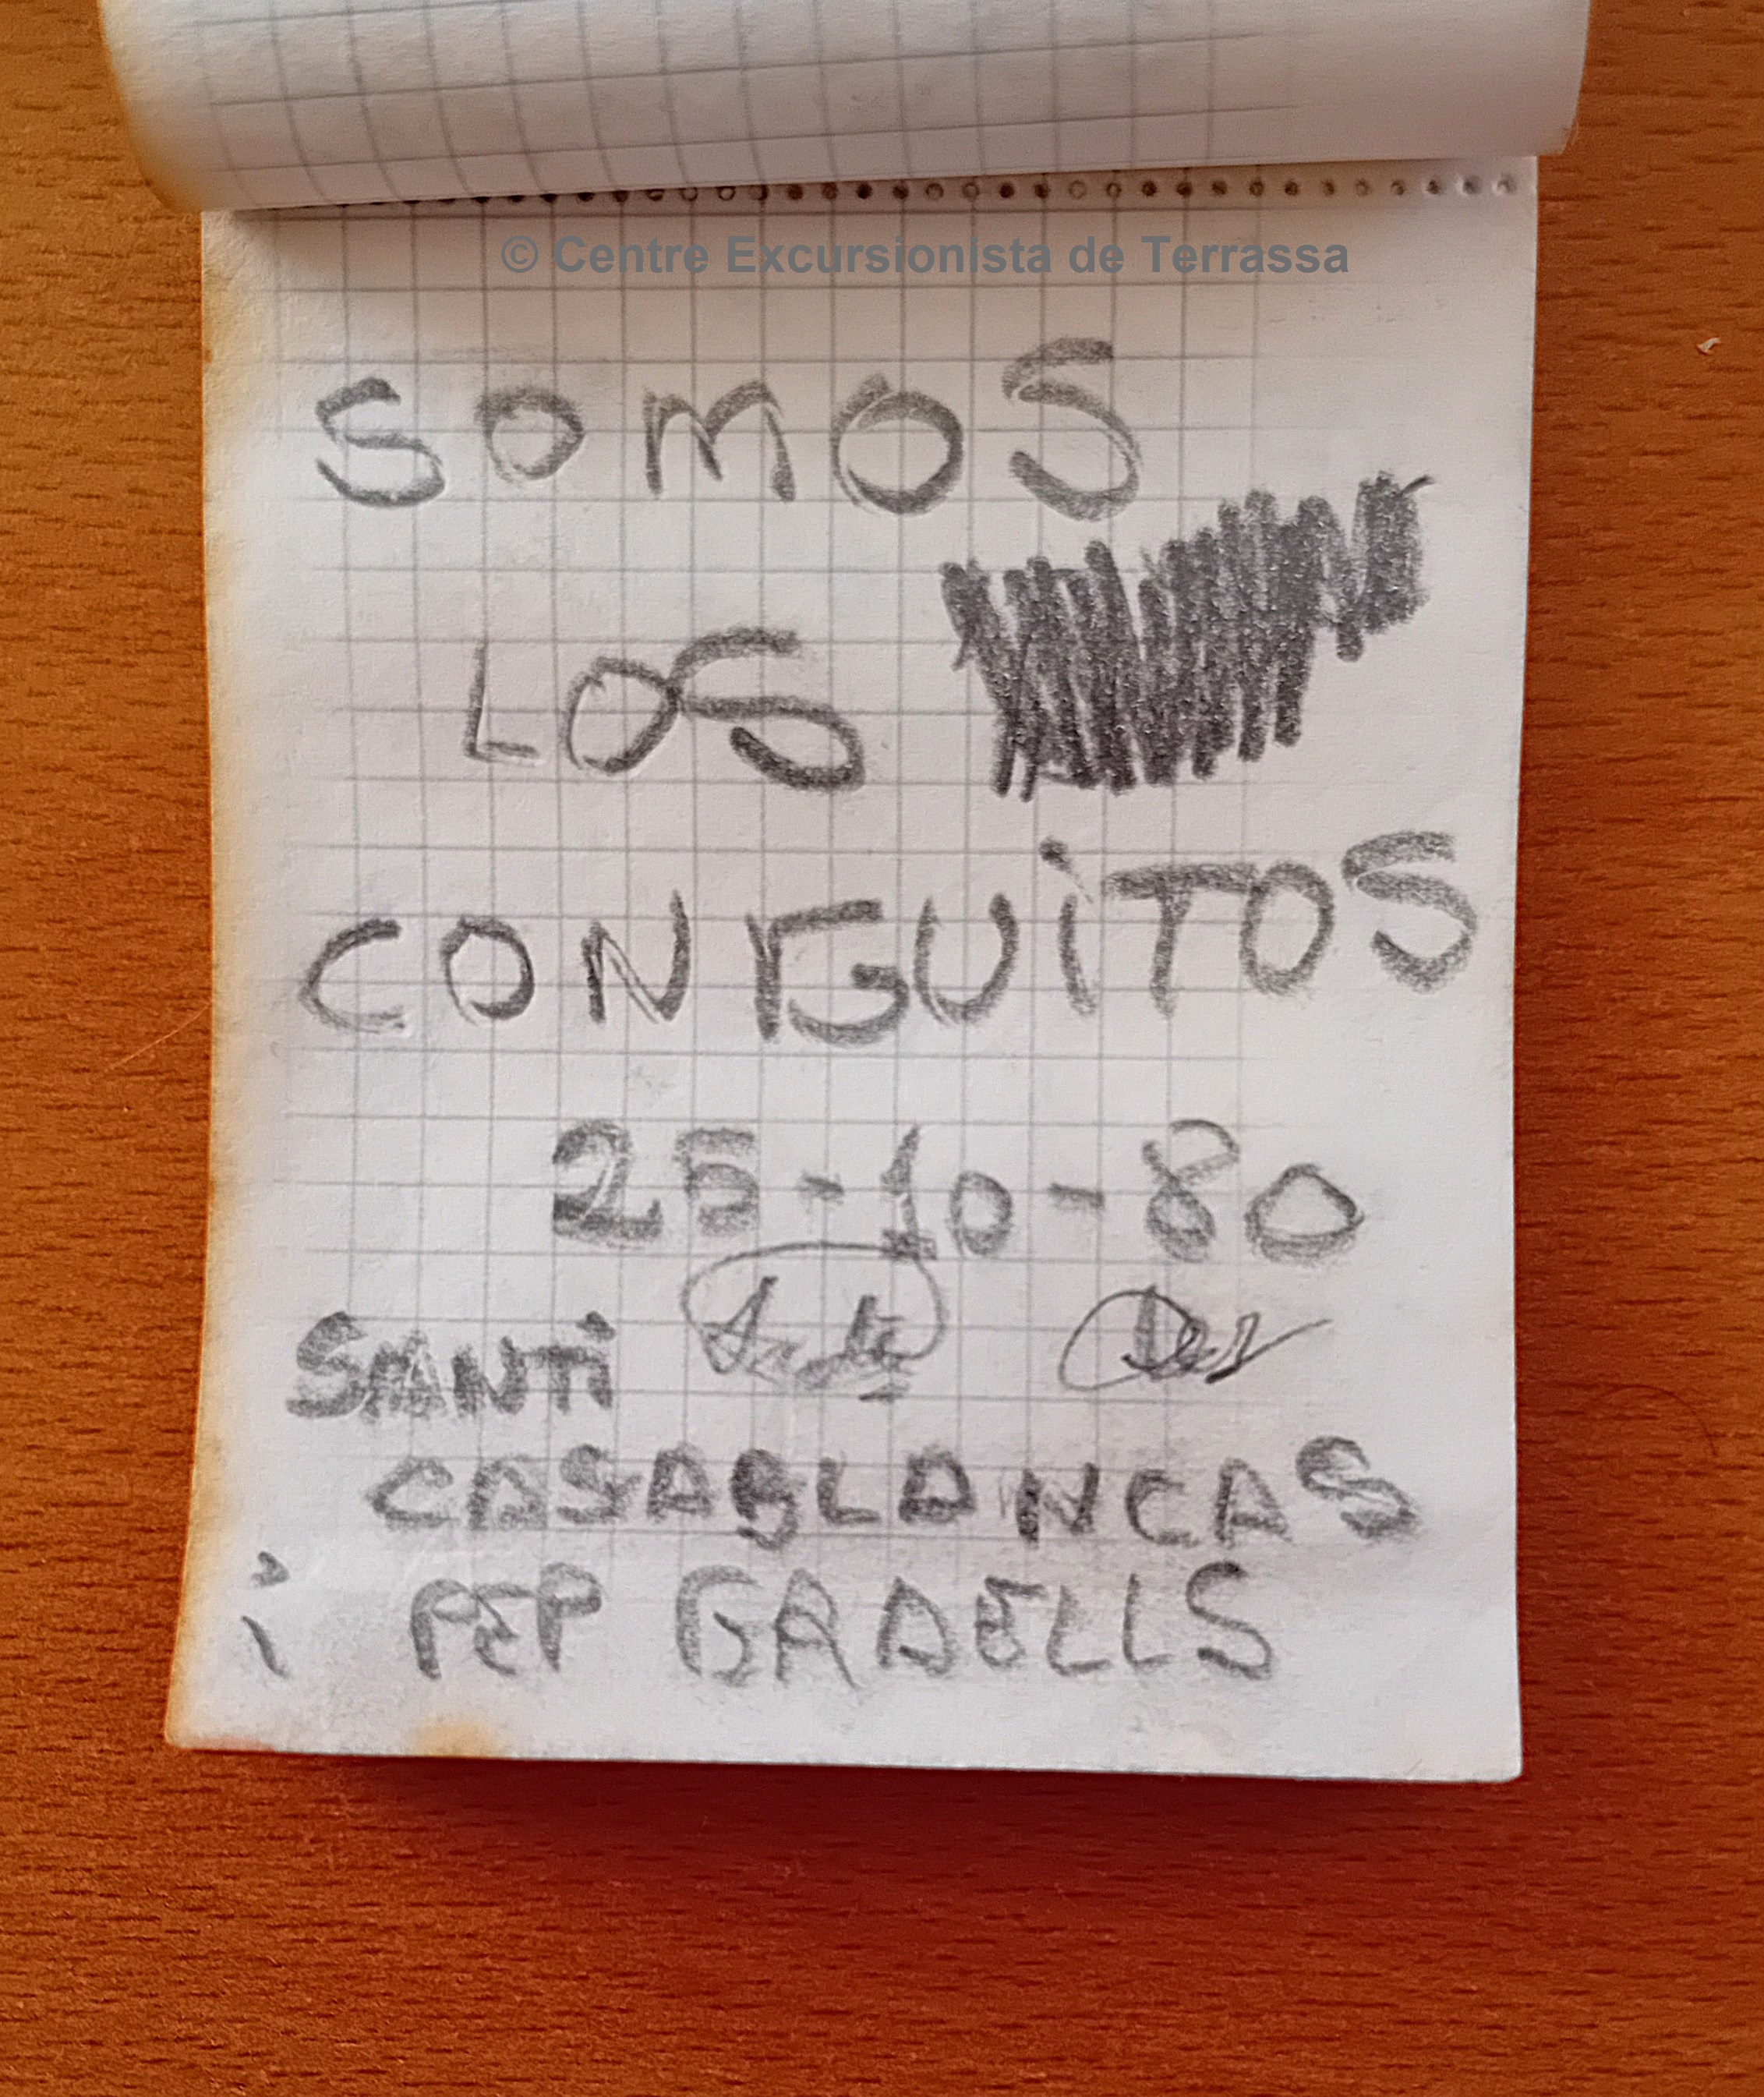 © Centre Excursionista de Terrassa
SOMOS
LOS
CONGUiTOS
25-10-80
SANTi
CASABLANCAS
i PEP GRAELLS